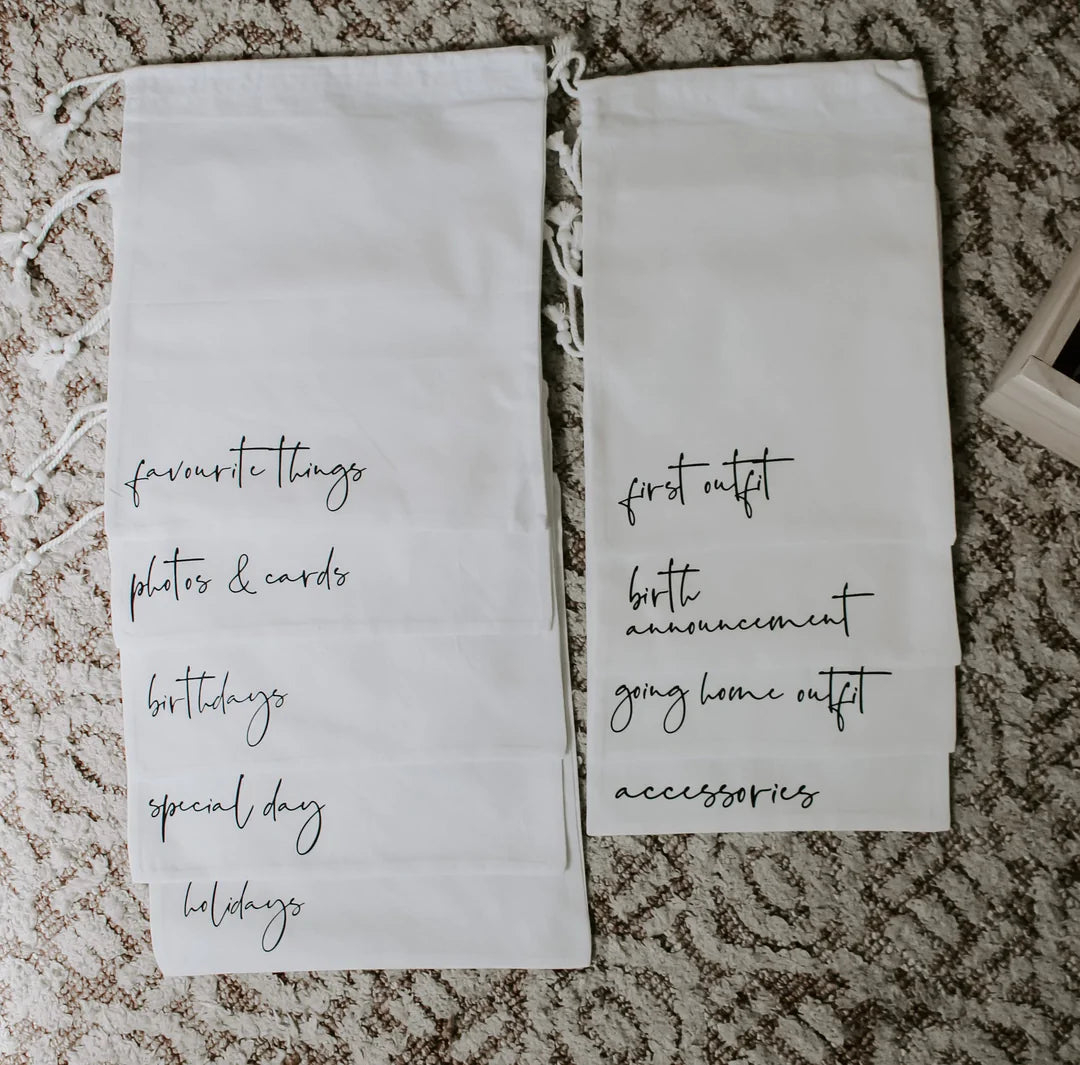 favourite things
photos & cards
birthdays
special day
holidays
first outfit
birth
announcement
going home outfit
accessories